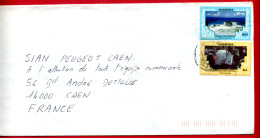 SIAN PEUGEOT CAEN
A l'attention de toute l'équipe commerciale
56 Bd André Detolle
14000 CAEN
FRANCE